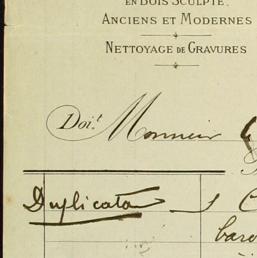 EN BOIS SCULPTÉ,
ANCIENS ET MODERNES
NETTOYAGE DE GRAVURES
Doi.t Monsieur
Duplicata